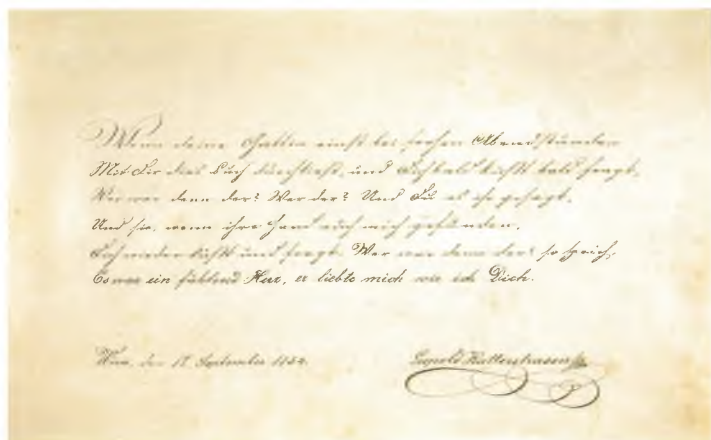 Wenn deine Gattin einst bei frohen Abendstunden
Mit Dir dies Buch durchliest, und Dich bald küßt bald fragt,
Wer war denn der? Wer der? Und Du es ihr gesagt,
Und sie, wenn ihre Hand auch mich gefunden,
Dich wieder küßt und fragt: Wer war denn der? so sprich,
Es war ein fühlend Herz, er liebte mich wie ich Dich.
Wien, den 17. September 1824.
Leopold